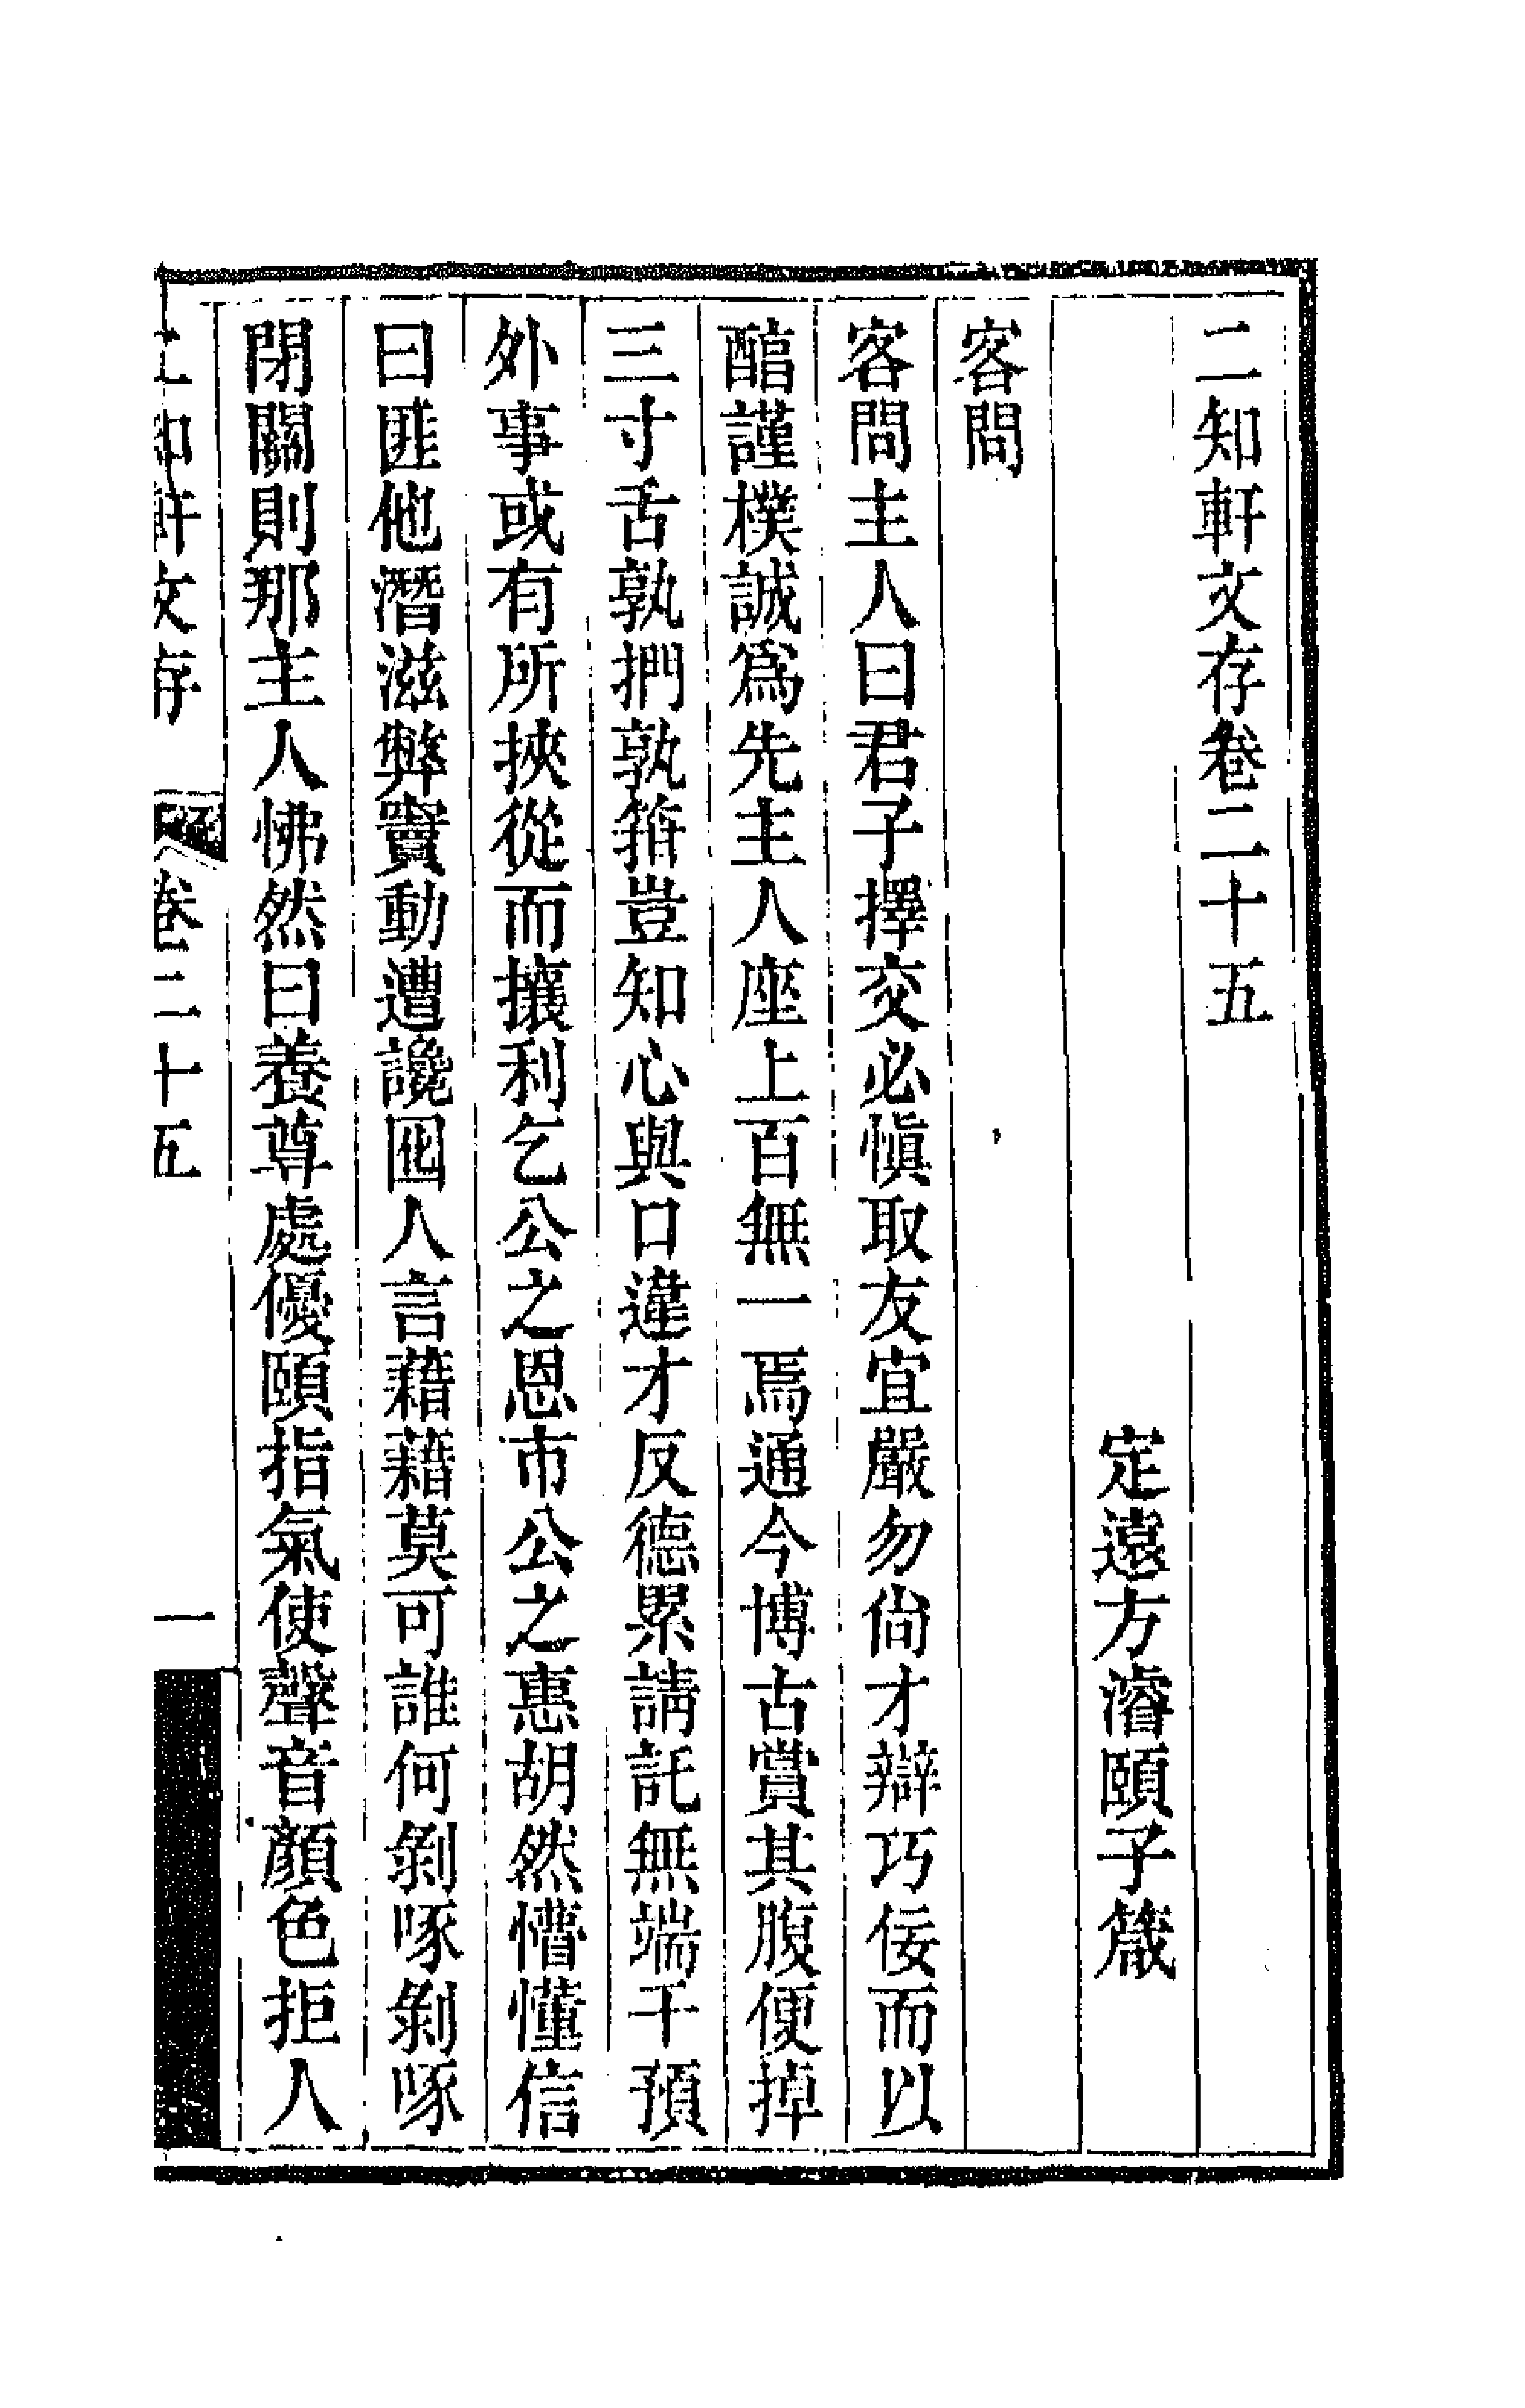 二知軒文存卷二十五
定遠方濬頤子箴
客問
客問主人曰君子擇交必慎取友宜嚴勿尙才辯巧佞而以
醕謹樸誠爲先主人座上百無一焉通今博古賞其腹便掉
三寸舌孰捫孰箝豈知心與口違才反德累請託無端干預
外事或有所挾從而攘利乞公之恩市公之惠胡然懵懂信
曰匪他潛滋弊竇動遭讒囮人言藉藉莫可誰何剝啄剝啄
閉關則那主人怫然曰養尊處優頤指氣使聲音顏色拒人
二知軒文存 卷二十五 一